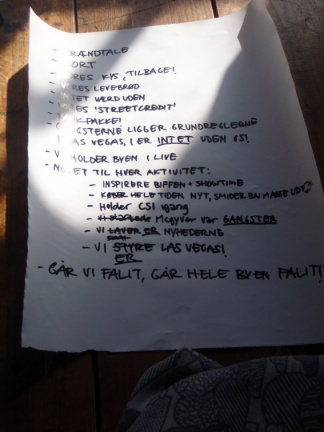 - BRÆNDTALE
- ORT
- VORES KYS, TILBAGE!
- VORES LEVEBRØD
- INTET VÆRD UDEN
- VORES 'STREETCREDIT'
- PAKKE!
- GANGSTERNE LIGGER GRUNDREGLERNE
I LAS VEGAS, I ER INTET UDEN OS!
- VI HOLDER BYEN I LIVE
- NOGET TIL HVER AKTIVITET:
- INSPIRERE BIFFEN + SHOWTIME
- KØBER HELE TIDEN NYT, SMIDER EN MASSE UD
- Holder CSI igang
- Mcgyver var GANGSTER
- VI LAVER ER NYHEDERNE
- VI STYRE LAS VEGAS!
ER
- GÅR VI FALIT, GÅR HELE BYEN FALIT!